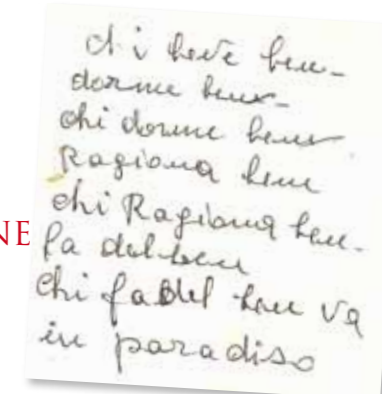 chi beve ben-
dorme bene-
chi dorme bene
Ragiona bene
chi Ragiona ben-
fa del bene
Chi fa del bene va
in paradiso
NE